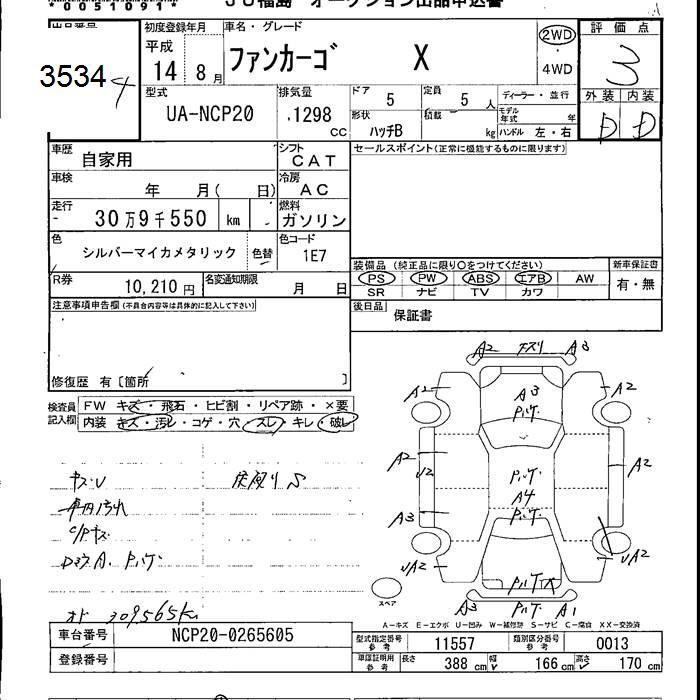 *0051091*
JU福島 オークション出品申込書
出品番号 初度登録年月 車名・グレード 評価点
3534 平成 ファンカーゴ X 2WD 3
4 14 8月 4WD
型式 排気量 ドア 定員 ディーラー・並行 外装 内装
UA-NCP20 .1298 5 5人 モデル年式 年 D D
cc 形状 ハッチB 積載 kg ハンドル 左・右
車歴 自家用 シフト CAT セールスポイント(正常に機能するものに限ります)
車検 年 月( 日) 冷房 AC
走行 30万9千550 km 燃料 ガソリン
色 シルバーマイカメタリック 色替 色コード 1E7
装備品 (純正品に限り○をつけてください) 新車保証書
R券 10,210円 名変通知期限 月 日 PS PW ABS エアB AW 有・無
SR ナビ TV カワ
注意事項申告欄(不具合内容等は具体的に記入して下さい) 後日品 保証書
修復歴 有〔箇所 〕
検査員 FW キズ・飛石・ヒビ割・リペア跡・×要
記入欄 内装 キズ・汚レ・コゲ・穴・スレ・キレ・破レ
A2 下スリ A3
A2 A3 A2
パルケ
A2 U2 パルケ A2
A4
A3 パルケ
UA2 UA2
パルケ大
A3 パルケ A1
スペア
キズU
車内汚れ
C/Pキズ
パルケ
オド 309565km
A-キズ E-エクボ U-凹み W-補修跡 S-サビ C-腐食 XX-交換済
車台番号 NCP20-0265605 型式指定番号 参考 11557 類別区分番号 参考 0013
登録番号 車庫証明用 参考 長さ 388cm 幅 166cm 高さ 170cm